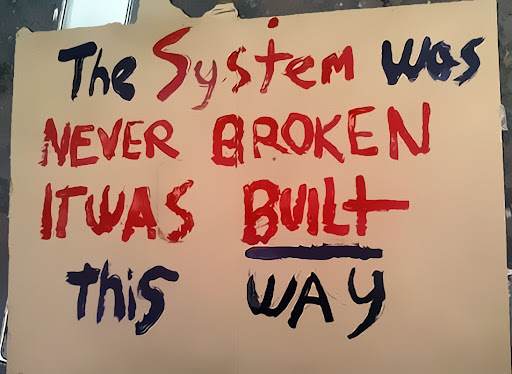 The System was
NEVER BROKEN
IT WAS BUILT
this WAY